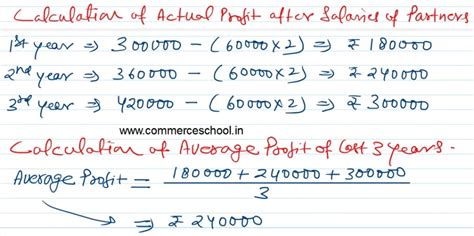 Calculation of Actual Profit after Salaries of Partners
1st year ⇒ 300000 - (60000×2) ⇒ ₹ 180000
2nd year ⇒ 360000 - (60000×2) ⇒ ₹ 240000
3rd year ⇒ 420000 - (60000×2) ⇒ ₹ 300000
www.commerceschool.in
Calculation of Average Profit of last 3 years.
Average Profit = 180000 + 240000 + 300000
3
⇒ ₹ 240000